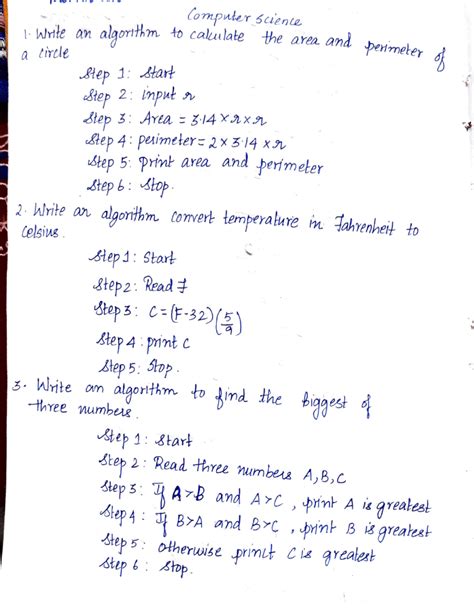 Computer Science
1. Write an algorithm to calculate the area and perimeter of
a circle
Step 1: Start
Step 2: input r
Step 3: Area = 3.14 × r × r
Step 4: perimeter = 2 × 3.14 × r
Step 5: print area and perimeter
Step 6: Stop.
2. Write an algorithm convert temperature in Fahrenheit to
Celsius.
Step 1: Start
Step 2: Read F
Step 3: C = (F-32) (5/9)
Step 4: print C
Step 5: Stop.
3. Write an algorithm to find the biggest of
three numbers.
Step 1: Start
Step 2: Read three numbers A, B, C
Step 3: If A>B and A>C, print A is greatest
Step 4: If B>A and B>C, print B is greatest
Step 5: otherwise print C is greatest
Step 6: Stop.